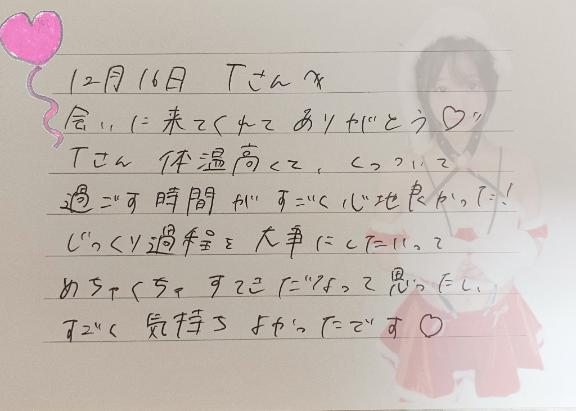 12月16日 Tさんへ
会いに来てくれてありがとう♡
Tさん 体温高くて、くっついて
過ごす時間がすごく心地良かった!
じっくり過程を大事にしたいって
めちゃくちゃすてきだなって思ったし、
すごく気持ちよかったです♡